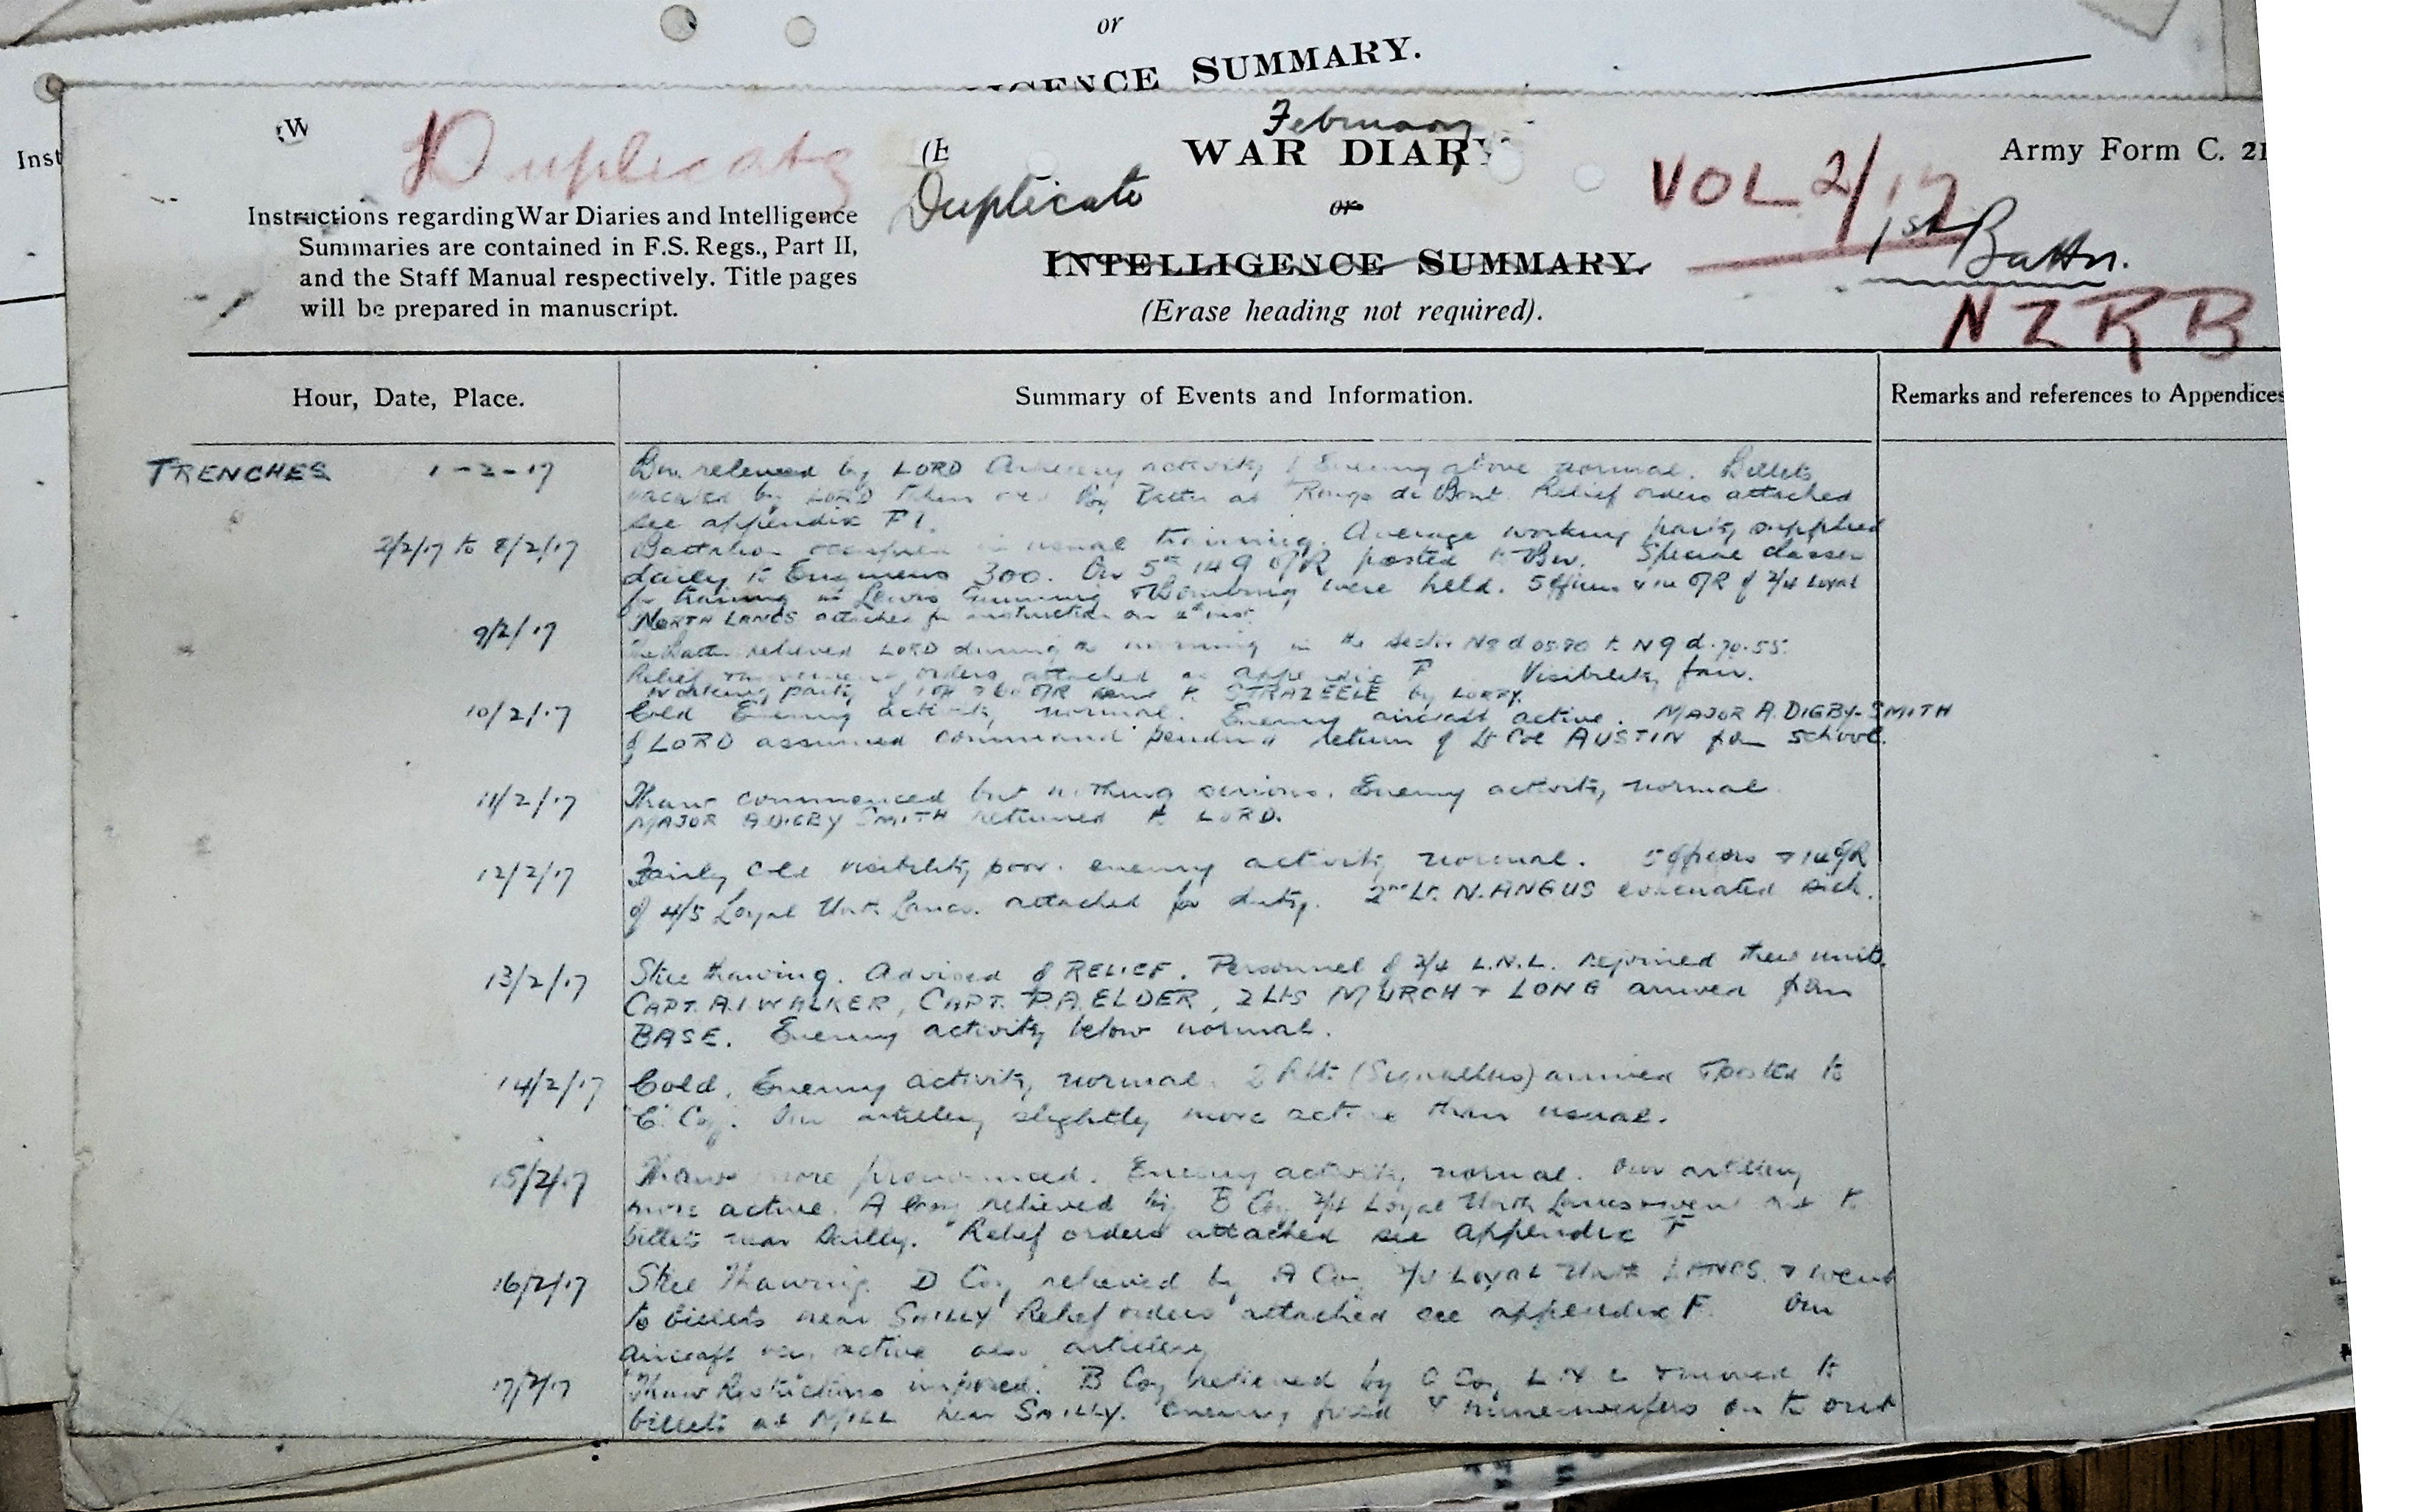 or
IGENCE SUMMARY.
Inst
Duplicate
(E
February
WAR DIARY
Duplicate
or
INTELLIGENCE SUMMARY.
(Erase heading not required).
Instructions regarding War Diaries and Intelligence
Summaries are contained in F.S. Regs., Part II,
and the Staff Manual respectively. Title pages
will be prepared in manuscript.
VOL 2/17
Army Form C. 21
1st Battn.
NZRB
Hour, Date, Place.
Summary of Events and Information.
Remarks and references to Appendices
TRENCHES 1-2-17
Bn. relieved by LORD Artillery activity Enemy above normal. Billets
vacated by LORD taken over by Battn at Rouge de Bout. Relief orders attached
see appendix F1.
2/2/17 to 8/2/17
Battalion occupied in usual training. Average working party supplied
daily to Engineers 300. On 5th 149 O/R posted to Bn. Special classes
for training in Lewis Gunning & Bombing were held. 5 Officers & O/R of 2/4 Loyal
NORTH LANCS attached for instruction on inst.
9/2/17
The Battn relieved LORD during the morning in the Sector N8d 05.90 to N9d.70.55.
Relief orders attached as appendix F Visibility fair.
Working party of O/R sent to STRAZEELE by LORRY.
10/2/17
Cold Enemy activity normal. Enemy aircraft active. MAJOR A. DIGBY-SMITH
of LORD assumed command pending return of Lt Col AUSTIN from school.
11/2/17
Thaw commenced but nothing serious. Enemy activity normal
MAJOR A.DIGBY SMITH returned to LORD.
12/2/17
Fairly cold visibility poor. enemy activity normal. 5 Officers & 14 O/R
of 4/5 Loyal North Lancs. attached for duty. 2nd Lt. N. ANGUS evacuated sick.
13/2/17
Still thawing. Advised of RELIEF. Personnel of 2/4 L.N.L. rejoined their units.
CAPT. A.I WALKER, CAPT. P.A. ELDER, 2 Lts MURCH & LONG arrived from
BASE. Enemy activity below normal.
14/2/17
Cold. Enemy activity normal. 2 (Signallers) arrived & posted to
C Coy. Our artillery slightly more active than usual.
15/2/17
Thaw more pronounced. Enemy activity normal. Our artillery
more active. A Coy relieved by B Coy 2/4 Loyal North Lancs & went out to
billets near Sailly. Relief orders attached see appendix F
16/2/17
Still Thawing. D Coy relieved by A Coy LOYAL North LANCS. & went
to billets near SAILLY Relief orders attached see appendix F. Our
aircraft very active also artillery
17/2/17
Thaw Restrictions imposed. B Coy relieved by C Coy L N L & moved to
billets at MILL near SAILLY. Enemy fired minenwerfers on to our